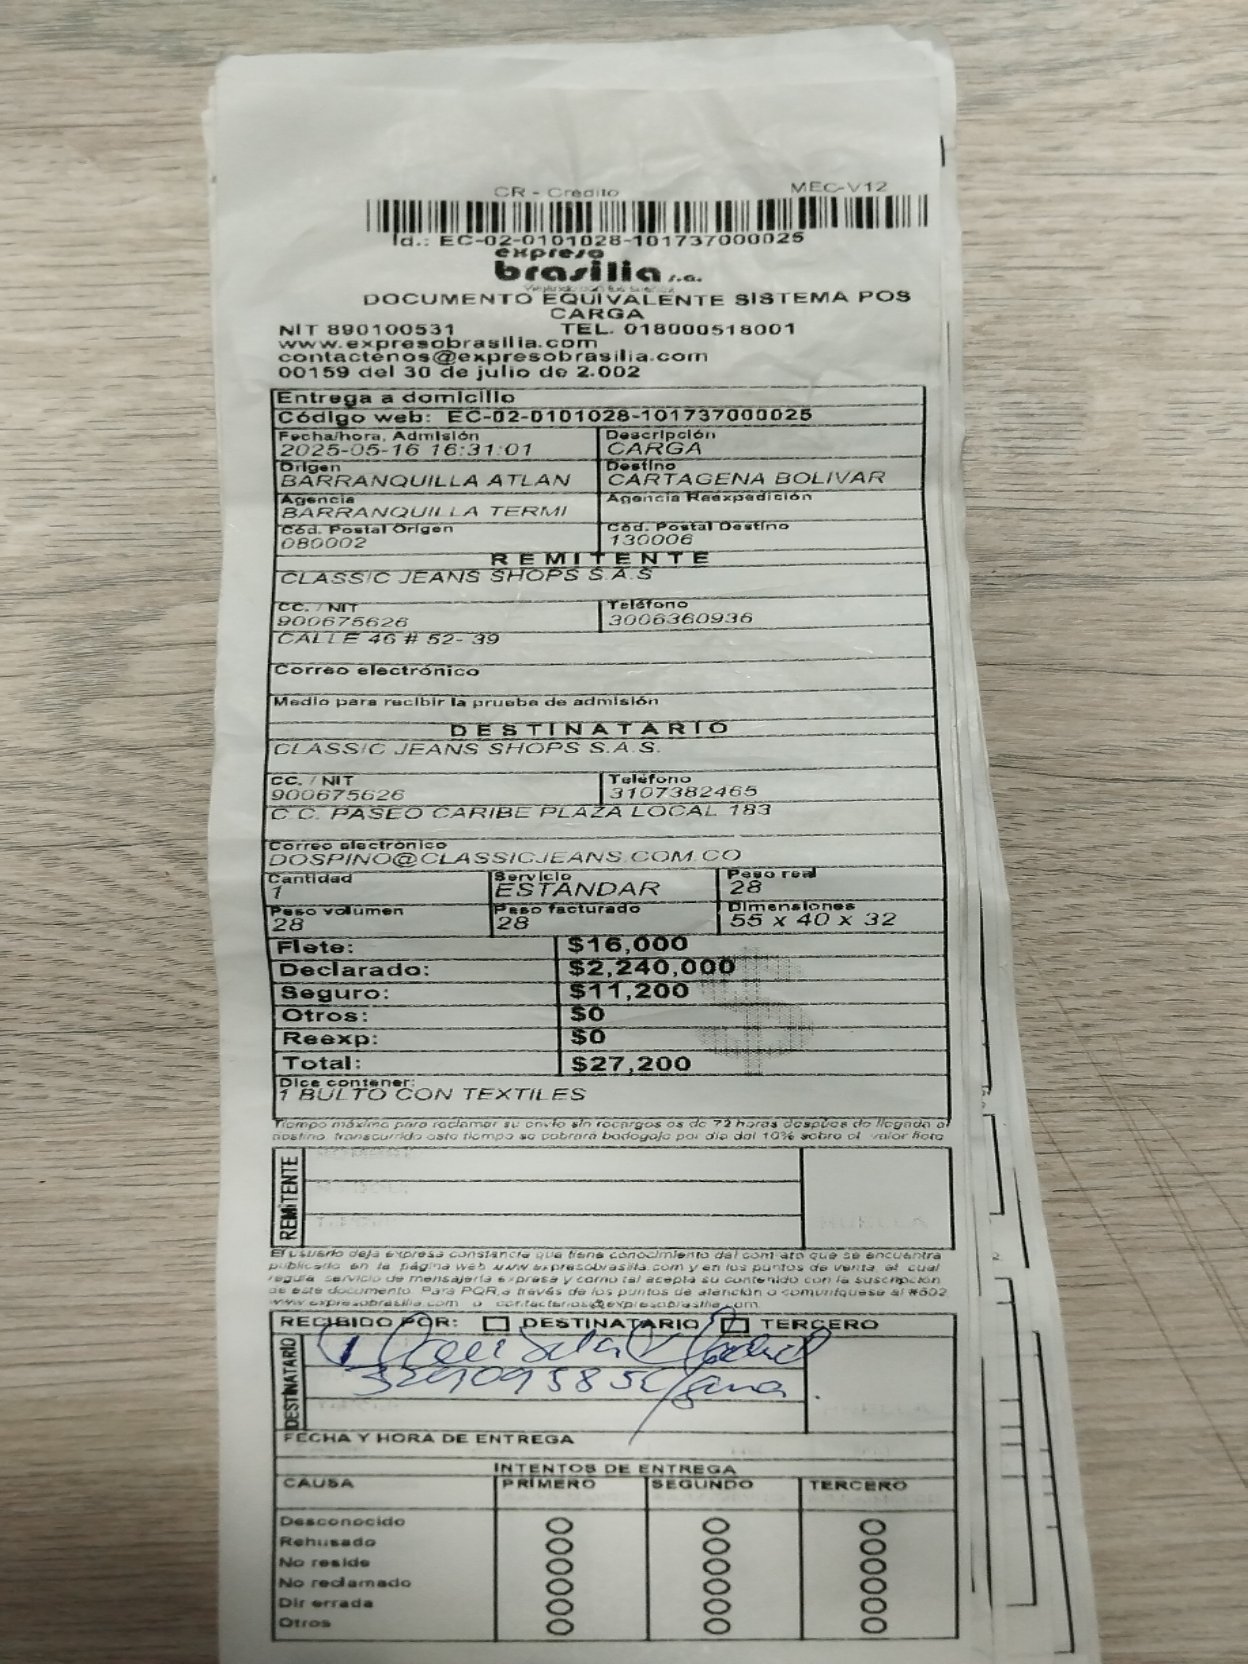 CR - Crédito MEC-V12
Id.: EC-02-0101028-101737000025
expreso
brasilia s.a.
DOCUMENTO EQUIVALENTE SISTEMA POS
CARGA
NIT 890100531 TEL. 018000518001
www.expresobrasilia.com
contactenos@expresobrasilia.com
00159 del 30 de julio de 2.002
Entrega a domicilio
Código web: EC-02-0101028-101737000025
Fecha/hora, Admisión Descripción
2025-05-16 16:31:01 CARGA
Origen Destino
BARRANQUILLA ATLAN CARTAGENA BOLIVAR
Agencia Agencia Reexpedición
BARRANQUILLA TERMI
Cód. Postal Origen Cód. Postal Destino
080002 130006
REMITENTE
CLASSIC JEANS SHOPS S.A.S
CC. / NIT Teléfono
900675626 3006360936
CALLE 46 # 52- 39
Correo electrónico
Medio para recibir la prueba de admisión
DESTINATARIO
CLASSIC JEANS SHOPS S.A.S.
CC. / NIT Teléfono
900675626 3107382465
C.C. PASEO CARIBE PLAZA LOCAL 183
Correo electrónico
DOSPINO@CLASSICJEANS.COM.CO
Cantidad Servicio Peso real
1 ESTANDAR 28
Peso volumen Peso facturado Dimensiones
28 28 55 x 40 x 32
Flete: $16,000
Declarado: $2,240,000
Seguro: $11,200
Otros: $0
Reexp: $0
Total: $27,200
Dice contener:
1 BULTO CON TEXTILES
Tiempo máximo para reclamar su envío sin recargos es de 72 horas después de llegada al
destino, transcurrido este tiempo se cobrará bodegaje por día del 10% sobre el valor flete
REMITENTE
HUELLA
El usuario deja expresa constancia que tiene conocimiento del contrato que se encuentra
publicado en la página web www.expresobrasilia.com y en los puntos de venta, el cual
regula servicio de mensajería expresa y como tal acepta su contenido con la suscripción
de este documento. Para PQR,a través de los puntos de atención o comuníquese al #502
www.expresobrasilia.com o contactenos@expresobrasilia.com
RECIBIDO POR: DESTINATARIO TERCERO
DESTINATARIO
FECHA Y HORA DE ENTREGA
INTENTOS DE ENTREGA
CAUSA PRIMERO SEGUNDO TERCERO
Desconocido
Rehusado
No reside
No reclamado
Dir errada
Otros